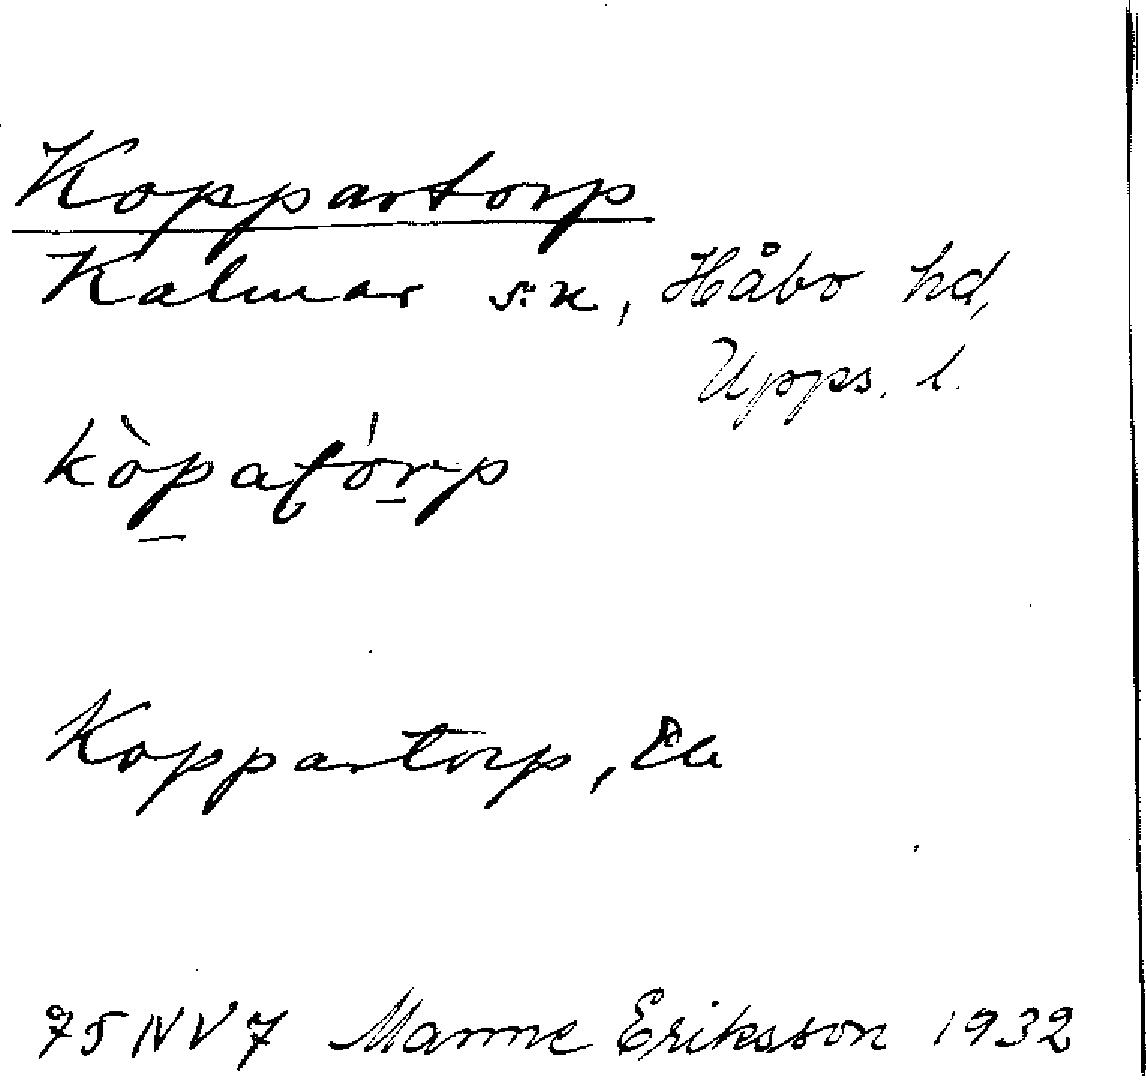 Koppartorp
Kalmar sn, Håbo hd,
Upps. l.
kòpaʈórp
Koppartorp,
75 NV 7 Manne Eriksson 1932